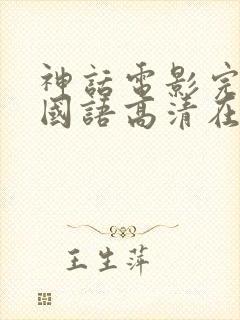 神話電影完
國語高清在
王生萍